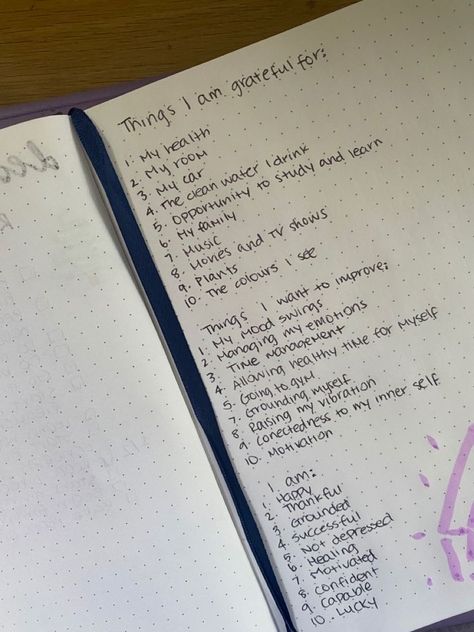 Things I am grateful for:
1. My health
2. My room
3. My car
4. The clean water I drink
5. Opportunity to study and learn
6. My family
7. Music
8. Movies and TV shows
9. Plants
10. The colours I see
Things I want to improve:
1. My mood swings
2. Managing my emotions
3. Time management
4. Allowing healthy time for myself
5. Going to gym
7. Grounding myself
8. Raising my vibration
9. Conectedness to my inner self
10. Motivation
I am:
1. Happy
2. Thankful
3. Grounded
4. Successful
5. Not depressed
6. Healing
7. Motivated
8. Confident
9. Capable
10. Lucky